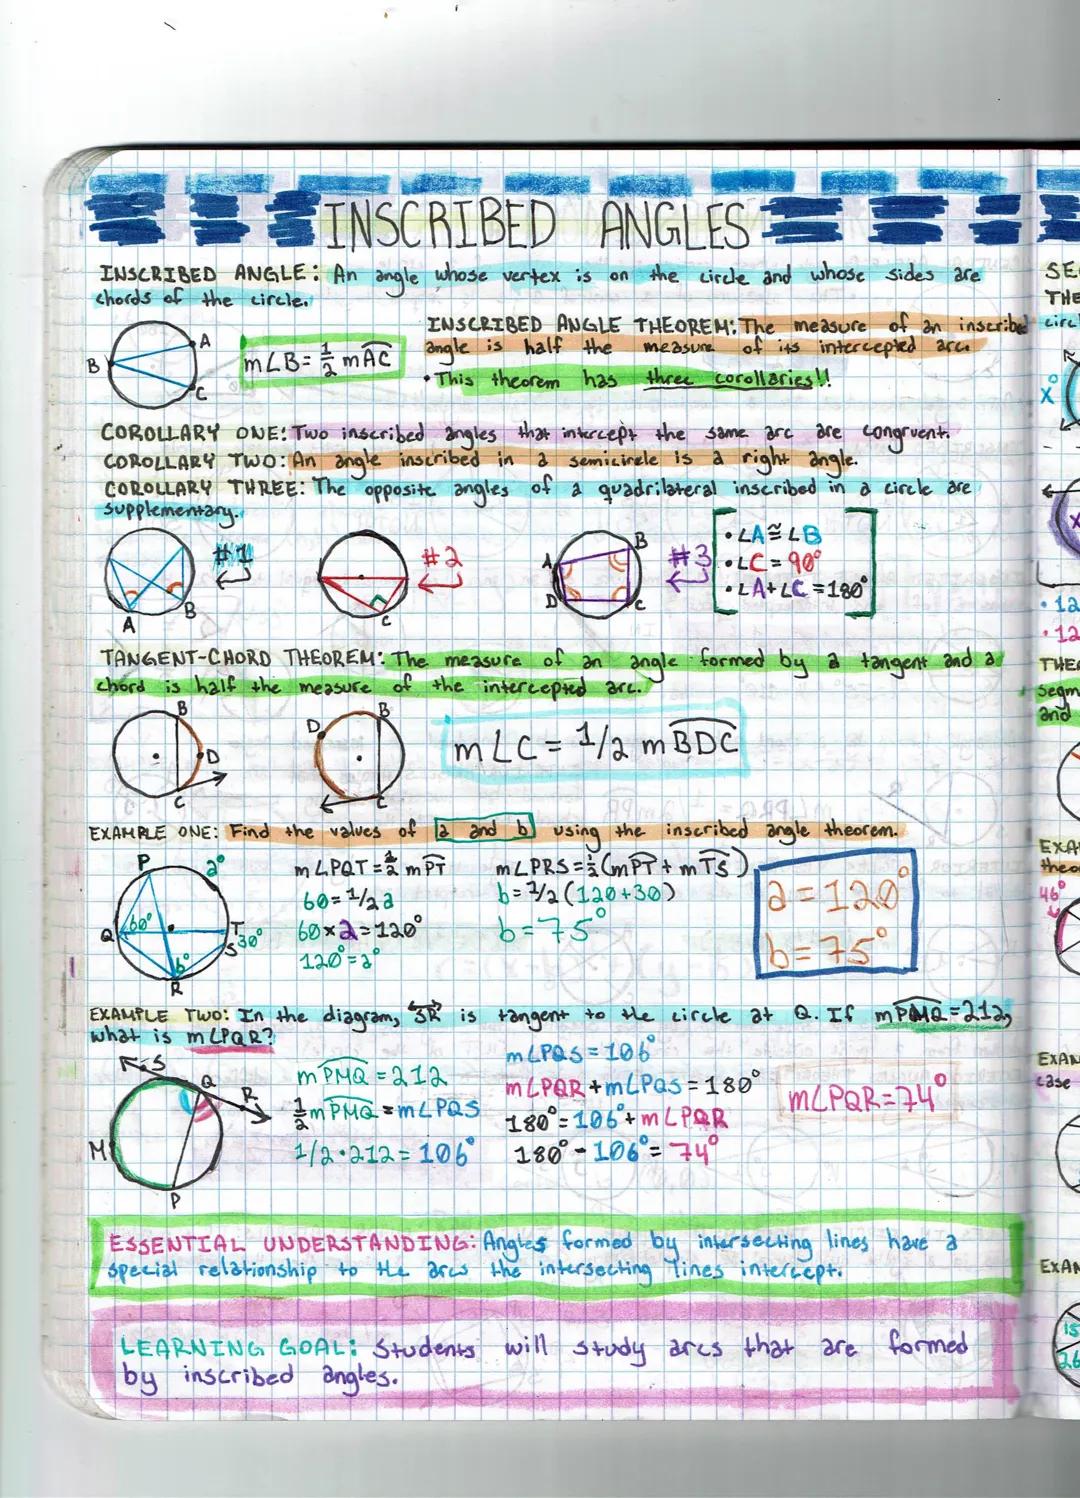 INSCRIBED ANGLES
INSCRIBED ANGLE: An angle whose vertex is on the circle and whose sides are
chords of the circle.
A
B
C
m∠B = 1/2 mAC
INSCRIBED ANGLE THEOREM: The measure of an inscribed
angle is half the measure of its intercepted arc.
• This theorem has three corollaries!!
COROLLARY ONE: Two inscribed angles that intercept the same arc are congruent.
COROLLARY TWO: An angle inscribed in a semicircle is a right angle.
COROLLARY THREE: The opposite angles of a quadrilateral inscribed in a circle are
supplementary.
A
B
#1
C
#2
A
B
C
D
#3
• ∠A ≅ ∠B
• ∠C = 90°
• ∠A + ∠C = 180°
TANGENT-CHORD THEOREM: The measure of an angle formed by a tangent and a
chord is half the measure of the intercepted arc.
B
D
C
D
B
C
m∠C = 1/2 mBDC
EXAMPLE ONE: Find the values of a and b using the inscribed angle theorem.
P
a°
Q
60°
T
S
30°
b°
R
m∠PQT = 1/2 mPT
60 = 1/2 a
60 x 2 = 120°
120° = a°
m∠PRS = 1/2 (mPT + mTS)
b = 1/2 (120+30)
b = 75°
a = 120°
b = 75°
EXAMPLE TWO: In the diagram, SR is tangent to the circle at Q. If mPMQ = 212,
what is m∠PQR?
S
Q
R
M
P
mPMQ = 212
1/2 mPMQ = m∠PQS
1/2 • 212 = 106°
m∠PQS = 106°
m∠PQR + m∠PQS = 180°
180° = 106° + m∠PQR
180° - 106° = 74°
m∠PQR = 74°
ESSENTIAL UNDERSTANDING: Angles formed by intersecting lines have a
special relationship to the arcs the intersecting lines intercept.
LEARNING GOAL: Students will study arcs that are formed
by inscribed angles.
THE
x°
• 12
• 12
and
46°
case
15
26